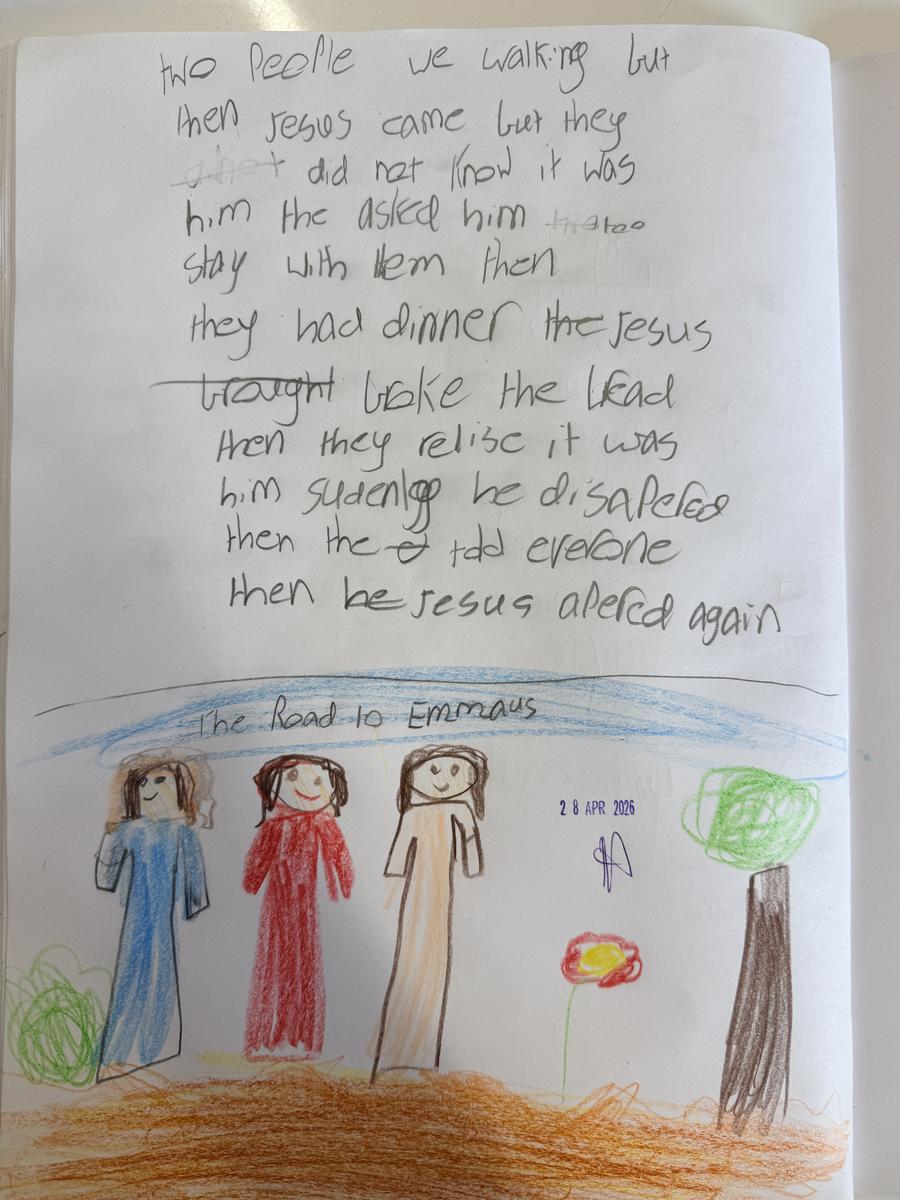 two people we walking but
then jesus came but they
did not know it was
him the asked him too
stay with tem then
they had dinner the jesus
brought broke the bread
then they relise it was
him sudenly he disapered
then the told everone
then he jesus apered again
The Road to Emmaus
28 APR 2026